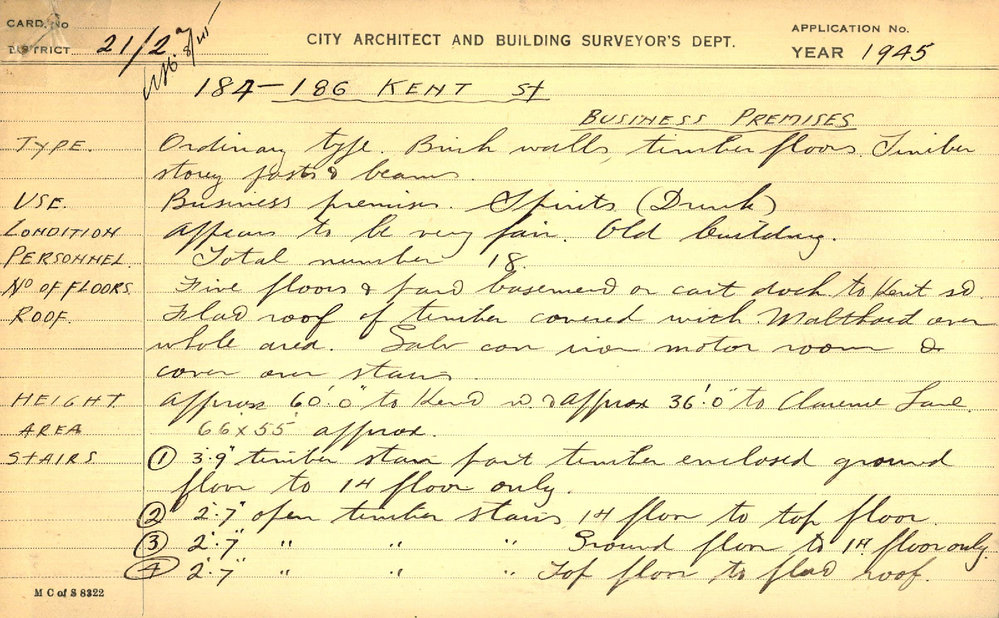 CARD. No
DISTRICT 21/2
CITY ARCHITECT AND BUILDING SURVEYOR'S DEPT.
APPLICATION No.
YEAR 1945
184-186 KENT St
BUSINESS PREMISES
TYPE. Ordinary type. Brick walls, timber floors. Timber
storey posts & beams.
USE. Business premises. Spirits (Drink)
CONDITION appears to be very fair. Old building.
PERSONNEL. Total number 18.
No OF FLOORS. Five floors & part basement or cart dock to Kent st.
ROOF. Flat roof of timber covered with Malthoid over
whole area. Galv corr iron motor room &
cover over stairs.
HEIGHT. approx 60'.0" to Kent st & approx 36'.0" to Clarence Lane.
AREA 66x55 approx.
STAIRS ① 3'.9" timber stairs part timber enclosed ground
floor to 1st floor only.
② 2'.7" open timber stairs 1st floor to top floor.
③ 2'.7" " " " Ground floor to 1st floor only.
④ 2'.7" " " " Top floor to flat roof.
M C of S 8322